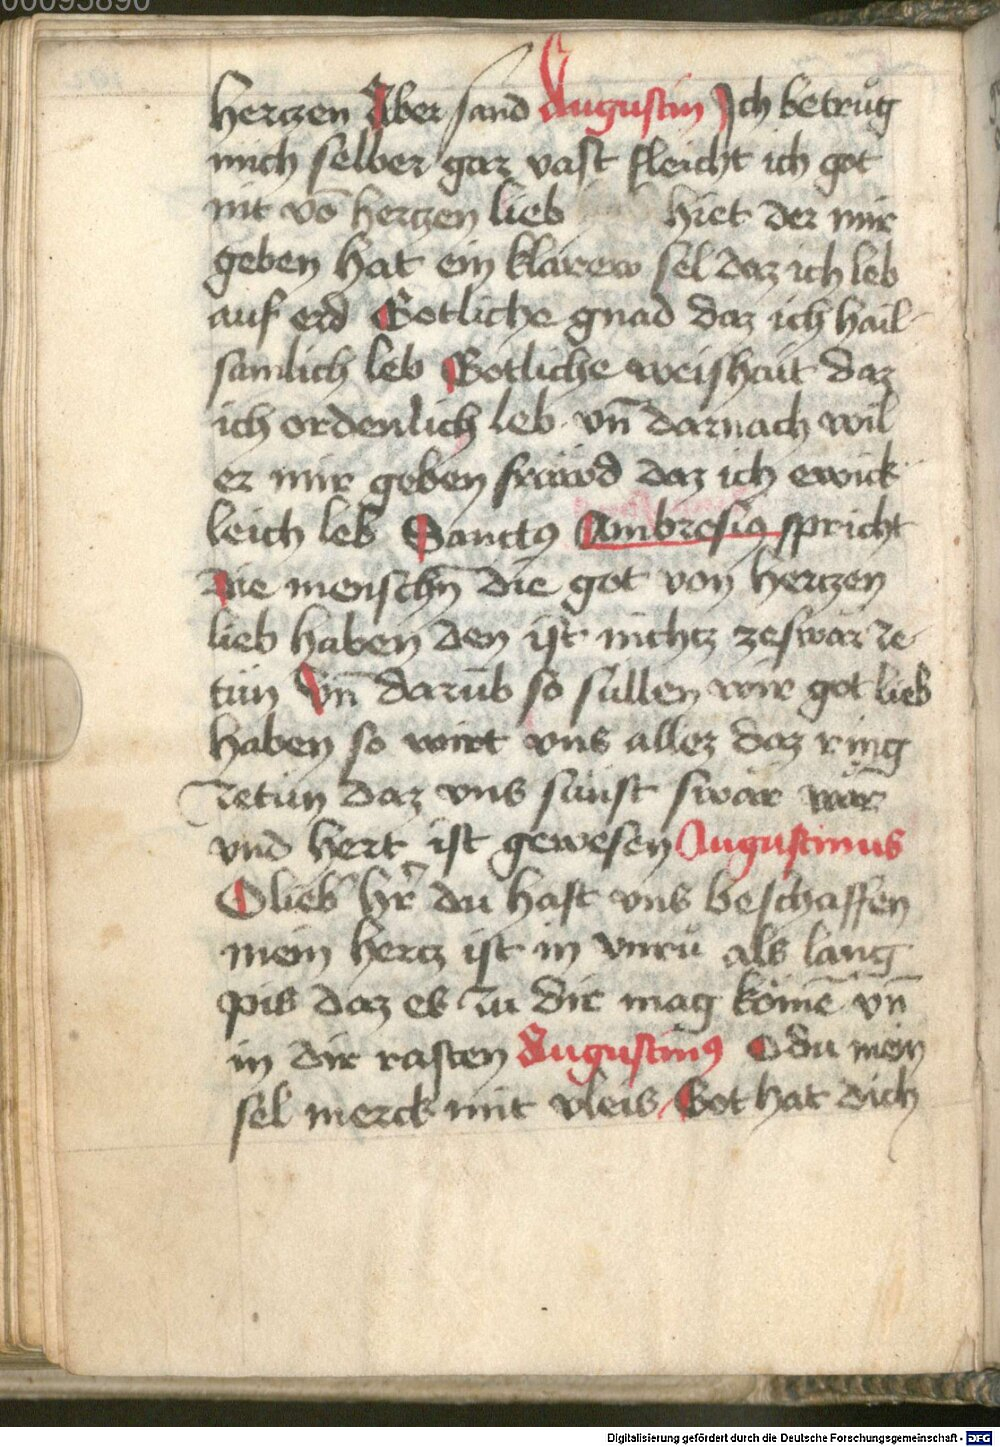 00095890
hertzen Aber sand Augustin Ich betrug
mich selber gar vast fleicht ich got
nit vō hertzen lieb hiet der mir
geben hat ein klarew sel daz ich leb
auf erd Gotliche gnad daz ich hail-
samlich leb Gotliche weishait daz
ich ordenlich leb vn̄ darnach wil
er mir geben frawd daz ich ewick
leich leb Sanctꝯ Ambresiꝯ spricht
Die menschn̄ die got von hertzen
lieb haben den ist nichtz zeswär ze
tün Vn̄ darūb so sullen wir got lieb
haben so wirt vns allez daz ring
zetün daz vns süust swär wär
vnd hert ist gewesen Augustinus
O lieb' hr̄ du hast vns beschaffen
mein hertz ist in vnrů als lang
pis daz es zu dir mag kömē vn̄
in dir rasten Augustinꝯ O du mein
sel merck mit vleis Got hat dich
Digitalisierung gefördert durch die Deutsche Forschungsgemeinschaft - DFG